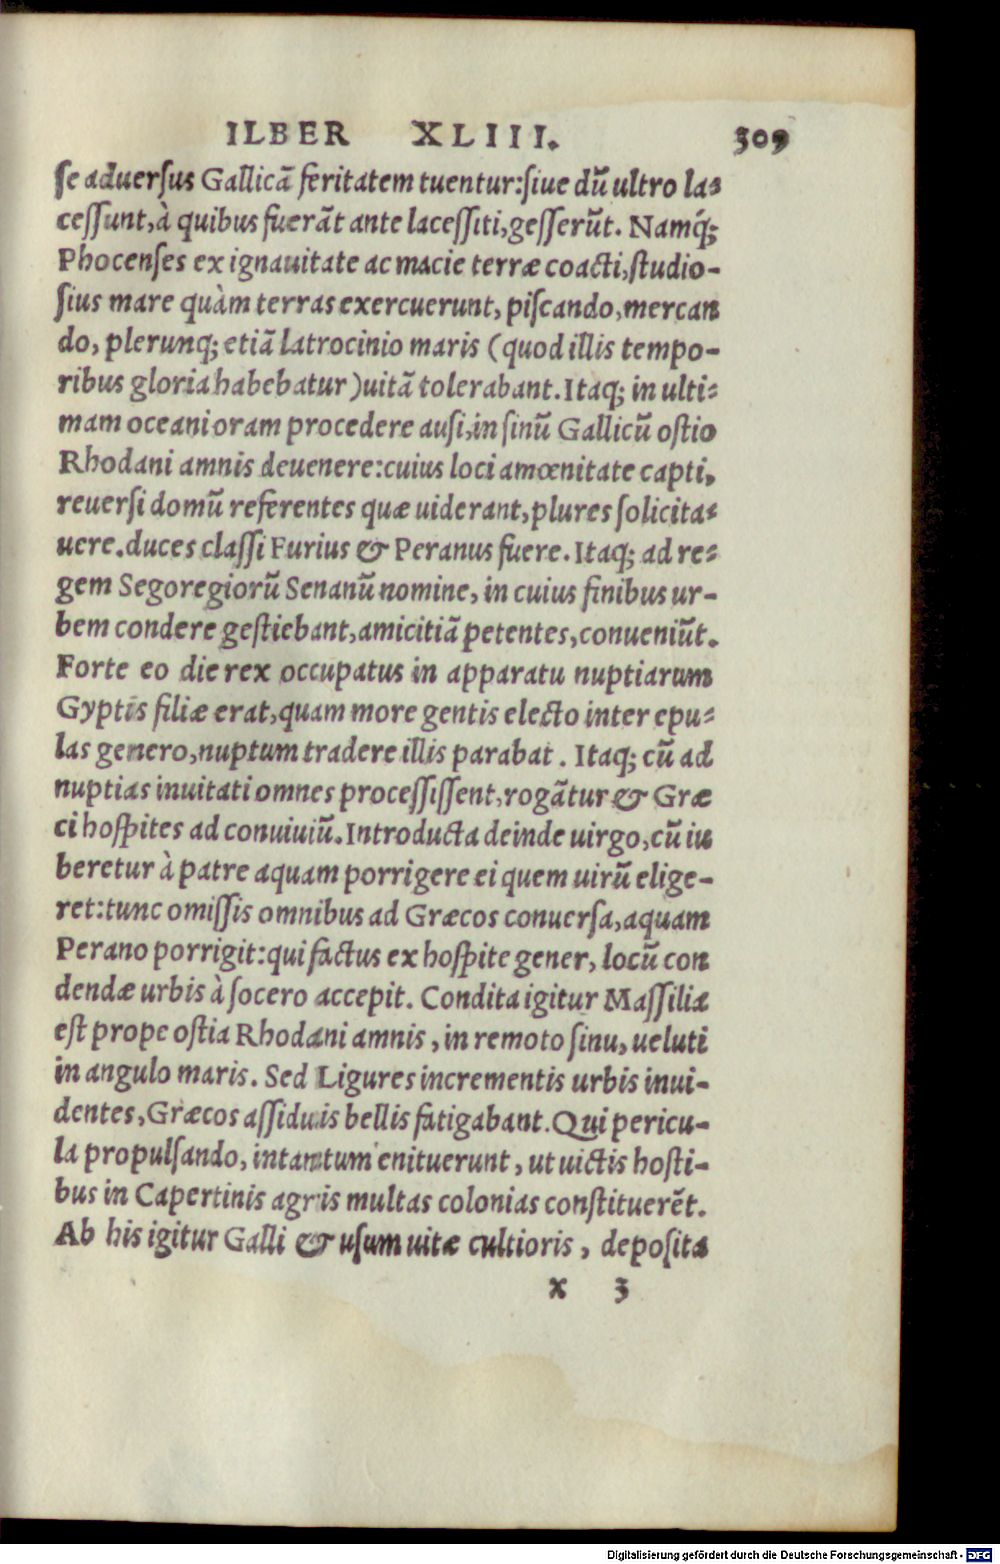 ILBER XLIII. 309
ſe aduerſus Gallicā feritatem tuentur:ſiue dū ultro la-
ceſſunt,à quibus fuerāt ante laceſſiti,geſſerūt. Namq́;
Phocenſes ex ignauitate ac macie terræ coacti,ſtudio-
ſius mare quàm terras exercuerunt, piſcando,mercan
do, plerunq; etiā latrocinio maris (quod illis tempo-
ribus gloria habebatur)uitā tolerabant.Itaq; in ulti-
mam oceani oram procedere auſi,in ſinū Gallicū oſtio
Rhodani amnis deuenere:cuius loci amœnitate capti,
reuerſi domū referentes quæ uiderant,plures ſolicita-
uere.duces claſſi Furius & Peranus fuere. Itaq; ad re-
gem Segoregiorū Senanū nomine, in cuius finibus ur-
bem condere geſtiebant,amicitiā petentes,conueniūt.
Forte eo die rex occupatus in apparatu nuptiarum
Gyptis filiæ erat,quam more gentis electo inter epu-
las genero,nuptum tradere illis parabat . Itaq; cū ad
nuptias inuitati omnes proceſſiſſent,rogātur & Græ
ci hoſpites ad conuiuiū.Introducta deinde uirgo,cū iu
beretur à patre aquam porrigere ei quem uirū elige-
ret:tunc omiſſis omnibus ad Græcos conuerſa,aquam
Perano porrigit:qui factus ex hoſpite gener, locū con
dendæ urbis à ſocero accepit. Condita igitur Maſſiliæ
eſt prope oſtia Rhodani amnis , in remoto ſinu, ueluti
in angulo maris. Sed Ligures incrementis urbis inui-
dentes,Græcos aſſiduis bellis fatigabant.Qui pericu-
la propulſando, intantum enituerunt , ut uictis hoſti-
bus in Capertinis agris multas colonias conſtituerēt.
Ab his igitur Galli & uſum uitæ cultioris , depoſita
x 3
Digitalisierung gefördert durch die Deutsche Forschungsgemeinschaft - DFG